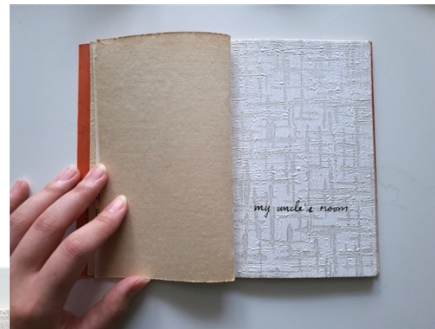 my uncle's room